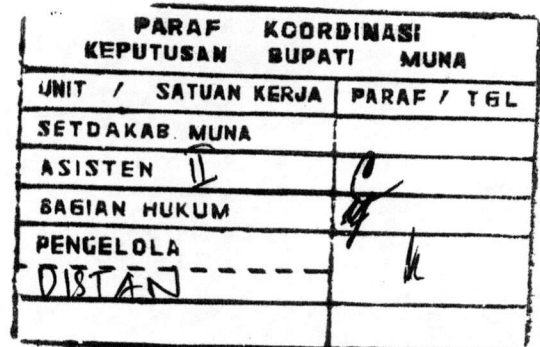 PARAF KOORDINASI
KEPUTUSAN BUPATI MUNA
UNIT / SATUAN KERJA PARAF / TGL
SETDAKAB. MUNA
ASISTEN II
BAGIAN HUKUM
PENGELOLA
DISTAN